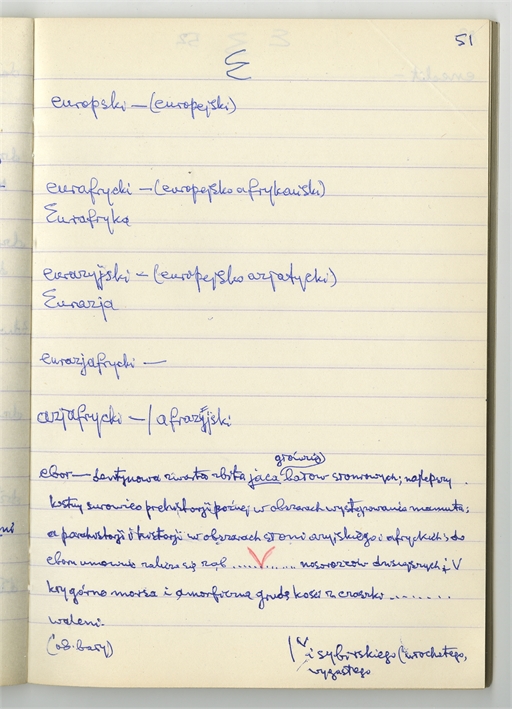 51
E
europski — (europejski)
eurafrycki — (europejsko afrykański)
Eurafryka
eurazyjski — (europejsko azjatycki)
Eurazja
eurazjafrycki —
azjafrycki — / afrazyjski
głównie
ebor — dentynowa zwarto zbita jąca ciosów słoniowych; najlepszy
kostny surowiec prehistorji późnej w obszarach występowania mamuta;
a parahistorji i historji w obszarach słoni azyjskiego i afryckich; do
eboru umownie zalicza się rąb ......... nosorożców dzisiejszych i V
kły górne morsa i amorficzną grudę kości z czaszki ........
waleni.
(ob. bazy)
V i sybirskiego (włochatego,
wygasłego